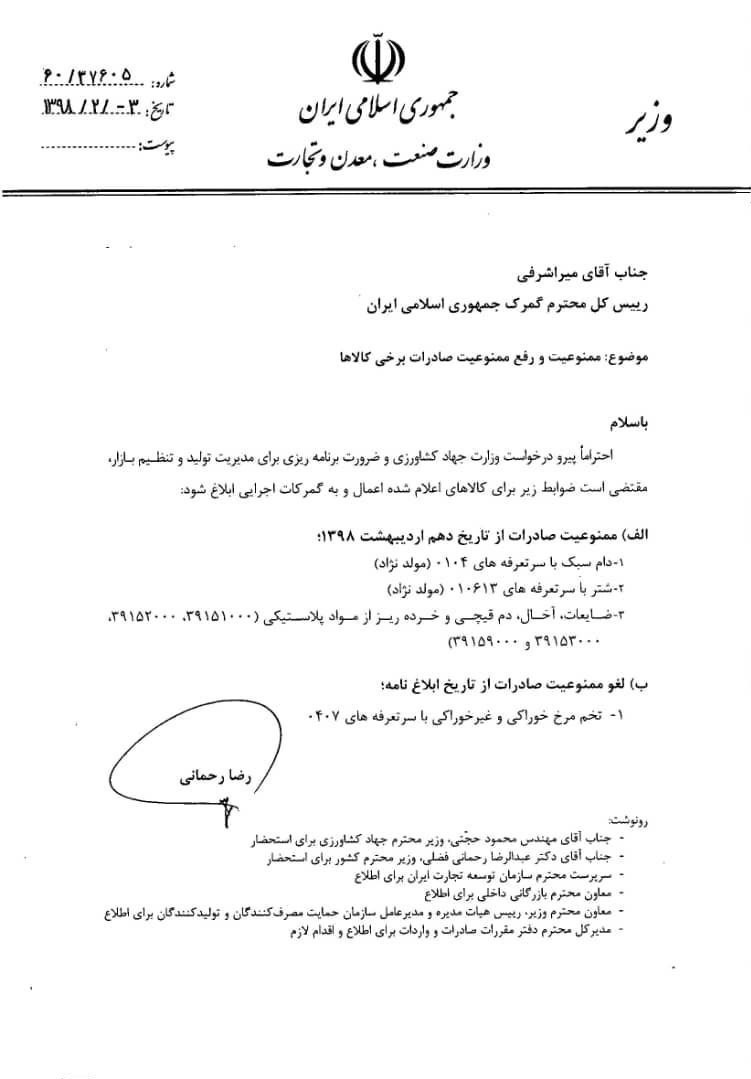 جمهوری اسلامی ایران
وزارت صنعت، معدن و تجارت
وزیر
شماره: ۶۰/۳۷۶۰۵
تاریخ: ۱۳۹۸/۲/۰۳
پیوست:
جناب آقای میراشرفی
رییس کل محترم گمرک جمهوری اسلامی ایران
موضوع: ممنوعیت و رفع ممنوعیت صادرات برخی کالاها
باسلام
احتراماً پیرو درخواست وزارت جهاد کشاورزی و ضرورت برنامه ریزی برای مدیریت تولید و تنظیم بازار،
مقتضی است ضوابط زیر برای کالاهای اعلام شده اعمال و به گمرکات اجرایی ابلاغ شود:
الف) ممنوعیت صادرات از تاریخ دهم اردیبهشت ۱۳۹۸؛
۱-دام سبک با سرتعرفه های ۰۱۰۴ (مولد نژاد)
۲-شتر با سرتعرفه های ۰۱۰۶۱۳ (مولد نژاد)
۳-ضایعات، آخال، دم قیچی و خرده ریز از مواد پلاستیکی (۳۹۱۵۱۰۰۰، ۳۹۱۵۲۰۰۰،
۳۹۱۵۳۰۰۰ و ۳۹۱۵۹۰۰۰)
ب) لغو ممنوعیت صادرات از تاریخ ابلاغ نامه؛
۱- تخم مرخ خوراکی و غیرخوراکی با سرتعرفه های ۰۴۰۷
رضا رحمانی
رونوشت:
- جناب آقای مهندس محمود حجّتی، وزیر محترم جهاد کشاورزی برای استحضار
- جناب آقای دکتر عبدالرضا رحمانی فضلی، وزیر محترم کشور برای استحضار
- سرپرست محترم سازمان توسعه تجارت ایران برای اطلاع
- معاون محترم بازرگانی داخلی برای اطلاع
- معاون محترم وزیر، رییس هیات مدیره و مدیرعامل سازمان حمایت مصرف‌کنندگان و تولیدکنندگان برای اطلاع
- مدیرکل محترم دفتر مقررات صادرات و واردات برای اطلاع و اقدام لازم